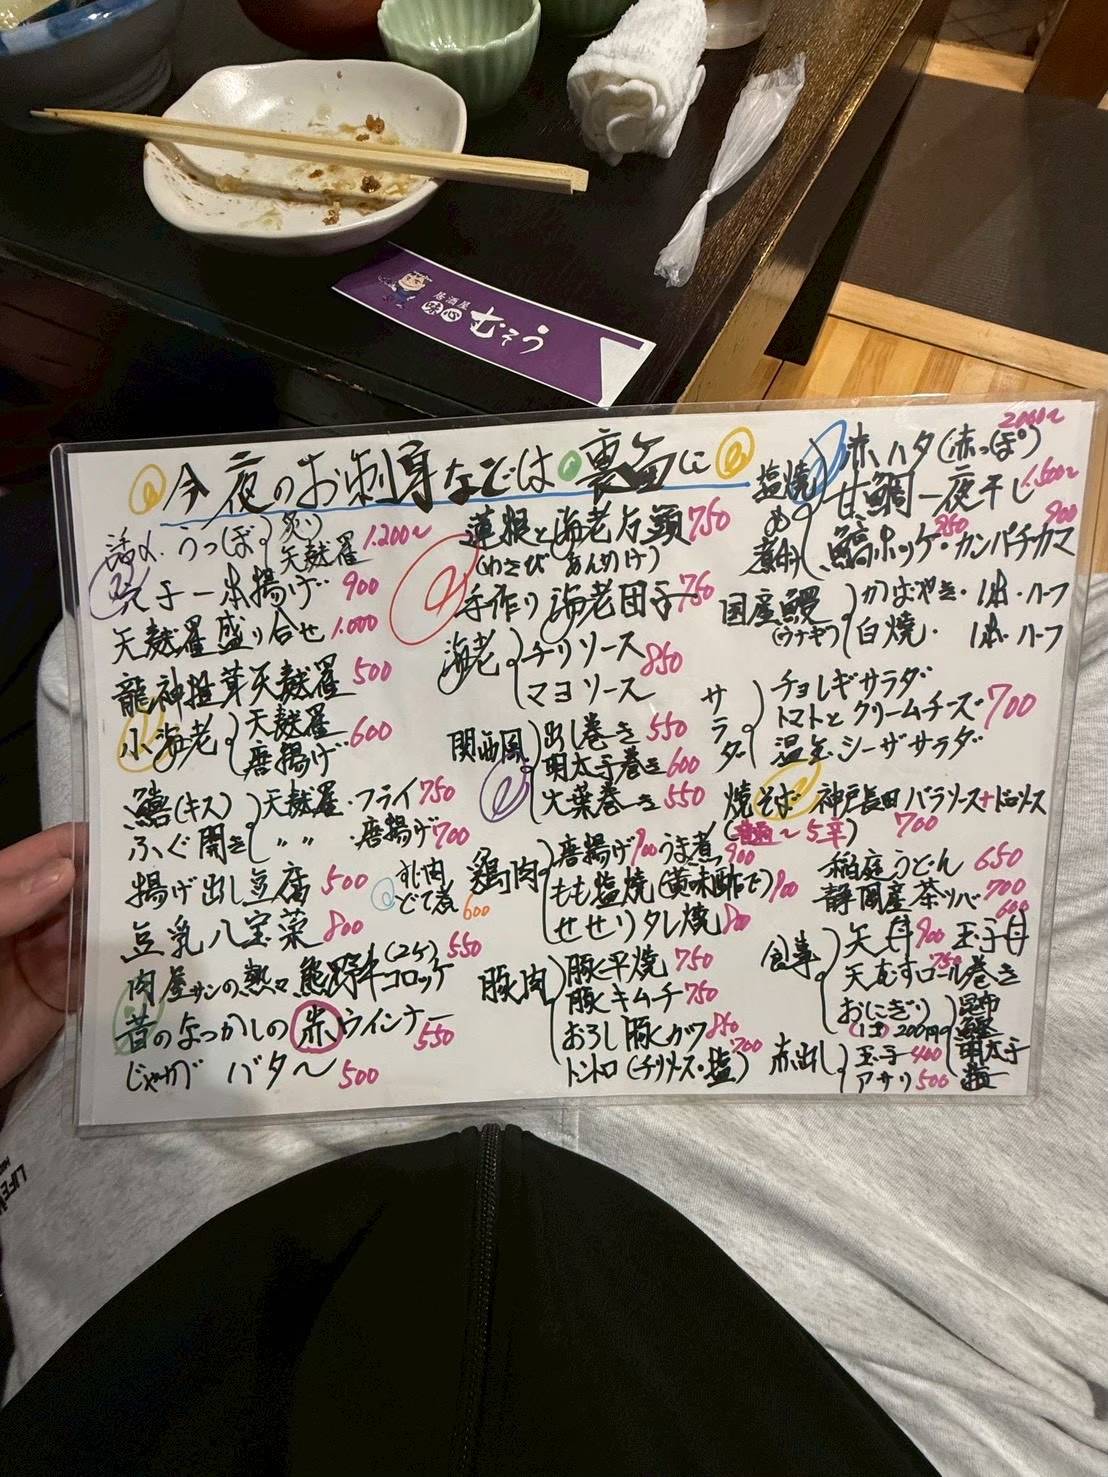 居酒屋
味心 むそう
今夜のお刺身などは裏面に
うっぽ 炙り 天麩羅 1.200~
穴子一本揚げ 900
天麩羅盛り合せ 1.000
龍神椎茸天麩羅 500
小海老 天麩羅 唐揚げ 600
鱚(キス) 天麩羅・フライ 750
ふぐ開き 〃 〃 唐揚げ 700
揚げ出し豆腐 500
すじ肉 どて煮 600
豆乳八宝菜 800
肉屋サンの熱々熊野牛コロッケ (2ケ) 550
昔のなつかしの赤ウインナー 550
じゃがバタ〜 500
蓮根と海老万頭 750
(わさびあんかけ)
手作り海老団子 750
海老 チリソース マヨソース 850
関西風 出し巻き 550
明太子巻き 600
大葉巻き 550
鶏肉 唐揚げ 900 うま煮 900
もも塩焼(黄味酢で) 900
せせりタレ焼 800
豚肉 豚平焼 750
豚キムチ 750
おろし豚カツ 850
トントロ(チリソース・塩) 700
塩焼 赤ハタ(赤っぽ) 2000~
甘鯛一夜干し 1.500~
煮付 縞ホッケ 850・カンパチカマ 900
国産鰻 かばやき・1本・ハーフ
(ウナギ) 白焼・ 1本・ハーフ
サラダ チョレギサラダ
トマトとクリームチーズ 700
温玉シーザサラダ
焼そば 神戸長田バラソース+ドロソース
~5辛) 700
稲庭うどん 650
静岡産茶ソバ 700
食事 天丼 900 玉子丼 600
天むすロール巻き 750
おにぎり 昆布
(1コ) 200円 明太子
赤出し 玉子 400
アサリ 500